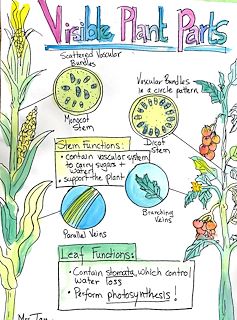 Visible Plant Parts
Scattered Vascular
Bundles
Vascular Bundles
in a circle pattern
Monocot
Stem
Dicot
Stem
Stem Functions:
• contain vascular system
to carry sugars +
water
• support the plant
Branching
Veins
Parallel Veins
Leaf Functions:
• Contain stomata, which control
water loss
• Perform photosynthesis!